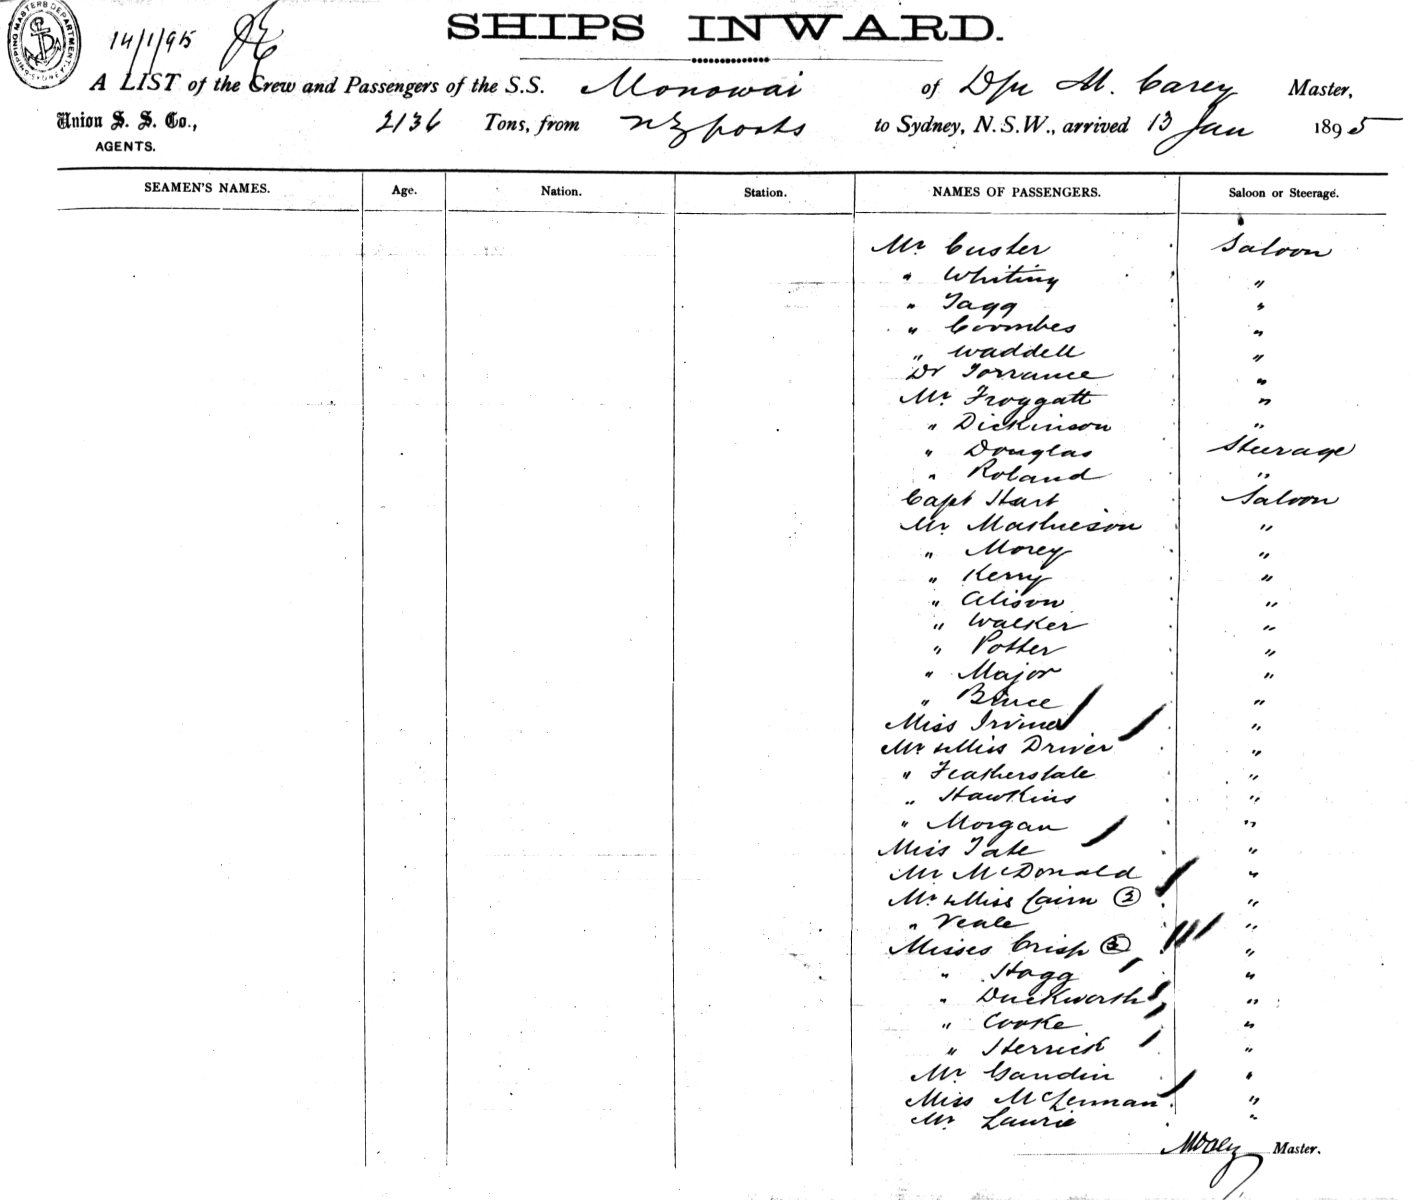 SHIPPING MASTERS DEPARTMENT SYDNEY
14/1/95
SHIPS INWARD.
A LIST of the Crew and Passengers of the S.S. Monowai of M. Carey Master,
Union S. S. Co., 2136 Tons, from NZ ports to Sydney, N.S.W., arrived 13 Jan 1895
AGENTS.
SEAMEN'S NAMES. Age. Nation. Station. NAMES OF PASSENGERS. Saloon or Steerage.
Mr Custer Saloon
" Whiting "
" Tagg "
" Coombes "
" Waddell "
Dr Torrance "
Mr Froggatt "
" Dickinson "
" Douglas Steerage
" Roland "
Capt Hart Saloon
Mr Mathieson "
" Morey "
" Kerry "
" Alison "
" Walker "
" Potter "
" Major "
" Bruce "
Miss Irvine "
Mr & Miss Driver "
" "
" Hawkins "
" Morgan "
Miss Tate "
Mr McDonald "
Mr & Miss Cairn "
" Veale "
Misses Crisp "
" Hogg "
" Duckworth "
" Cooke "
" Herrick "
Mr Gaudin "
Miss McLennan "
Mr Laurie "
MCarey Master.